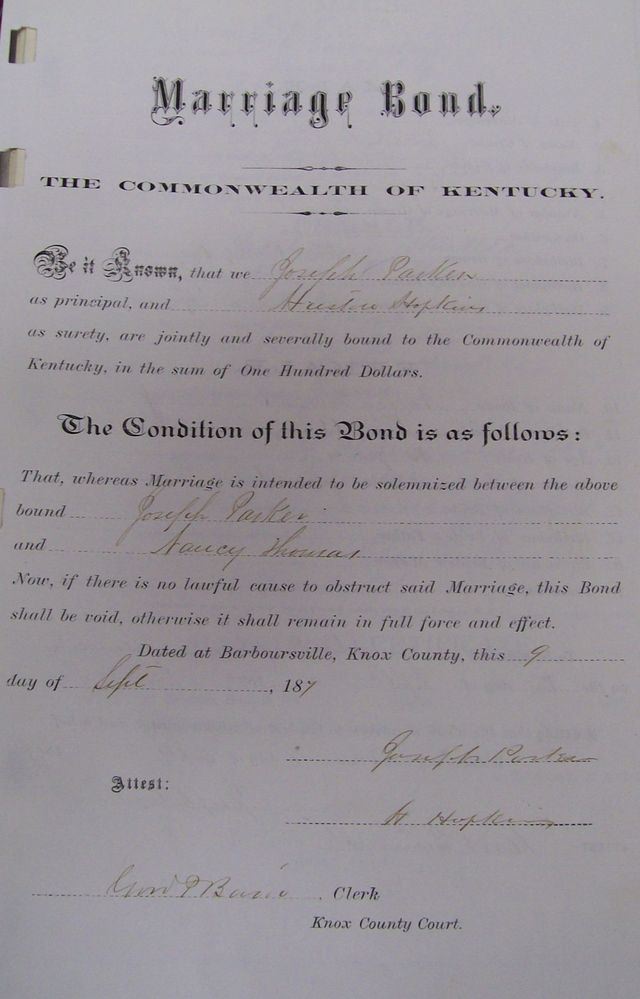 Marriage Bond.
THE COMMONWEALTH OF KENTUCKY.
Be it Known, that we Joseph Parker
as principal, and Hopkins
as surety, are jointly and severally bound to the Commonwealth of
Kentucky, in the sum of One Hundred Dollars.
The Condition of this Bond is as follows:
That, whereas Marriage is intended to be solemnized between the above
bound Joseph Parker
and Nancy Thomas
Now, if there is no lawful cause to obstruct said Marriage, this Bond
shall be void, otherwise it shall remain in full force and effect.
Dated at Barboursville, Knox County, this 9
day of Sept, 187
Joseph Parker
Attest:
H Hopkins
Clerk
Knox County Court.